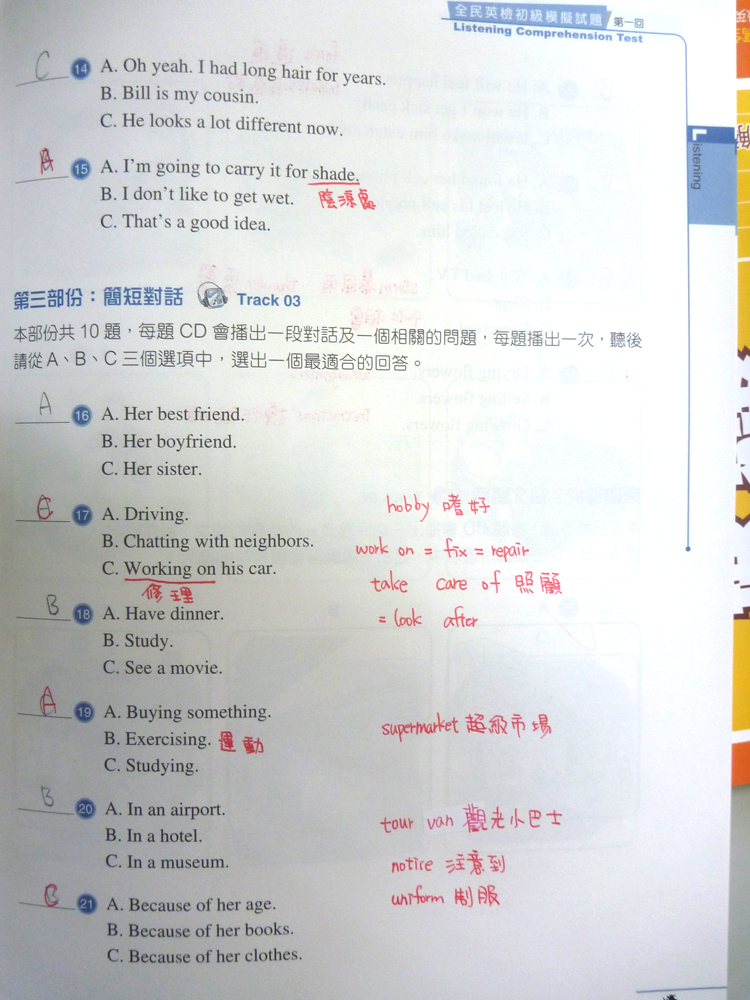 全民英檢初級模擬試題 第一回
Listening Comprehension Test
Listening
C 14 A. Oh yeah. I had long hair for years.
B. Bill is my cousin.
C. He looks a lot different now.
A 15 A. I'm going to carry it for shade.
B. I don't like to get wet. 陰涼處
C. That's a good idea.
第三部份：簡短對話 Track 03
本部份共 10 題，每題 CD 會播出一段對話及一個相關的問題，每題播出一次，聽後
請從 A、B、C 三個選項中，選出一個最適合的回答。
A 16 A. Her best friend.
B. Her boyfriend.
C. Her sister.
C 17 A. Driving. hobby 嗜好
B. Chatting with neighbors. work on = fix = repair
C. Working on his car. take care of 照顧
修理
B 18 A. Have dinner. = look after
B. Study.
C. See a movie.
A 19 A. Buying something. supermarket 超級市場
B. Exercising. 運動
C. Studying.
B 20 A. In an airport. tour van 觀光小巴士
B. In a hotel.
C. In a museum. notice 注意到
C 21 A. Because of her age. uniform 制服
B. Because of her books.
C. Because of her clothes.